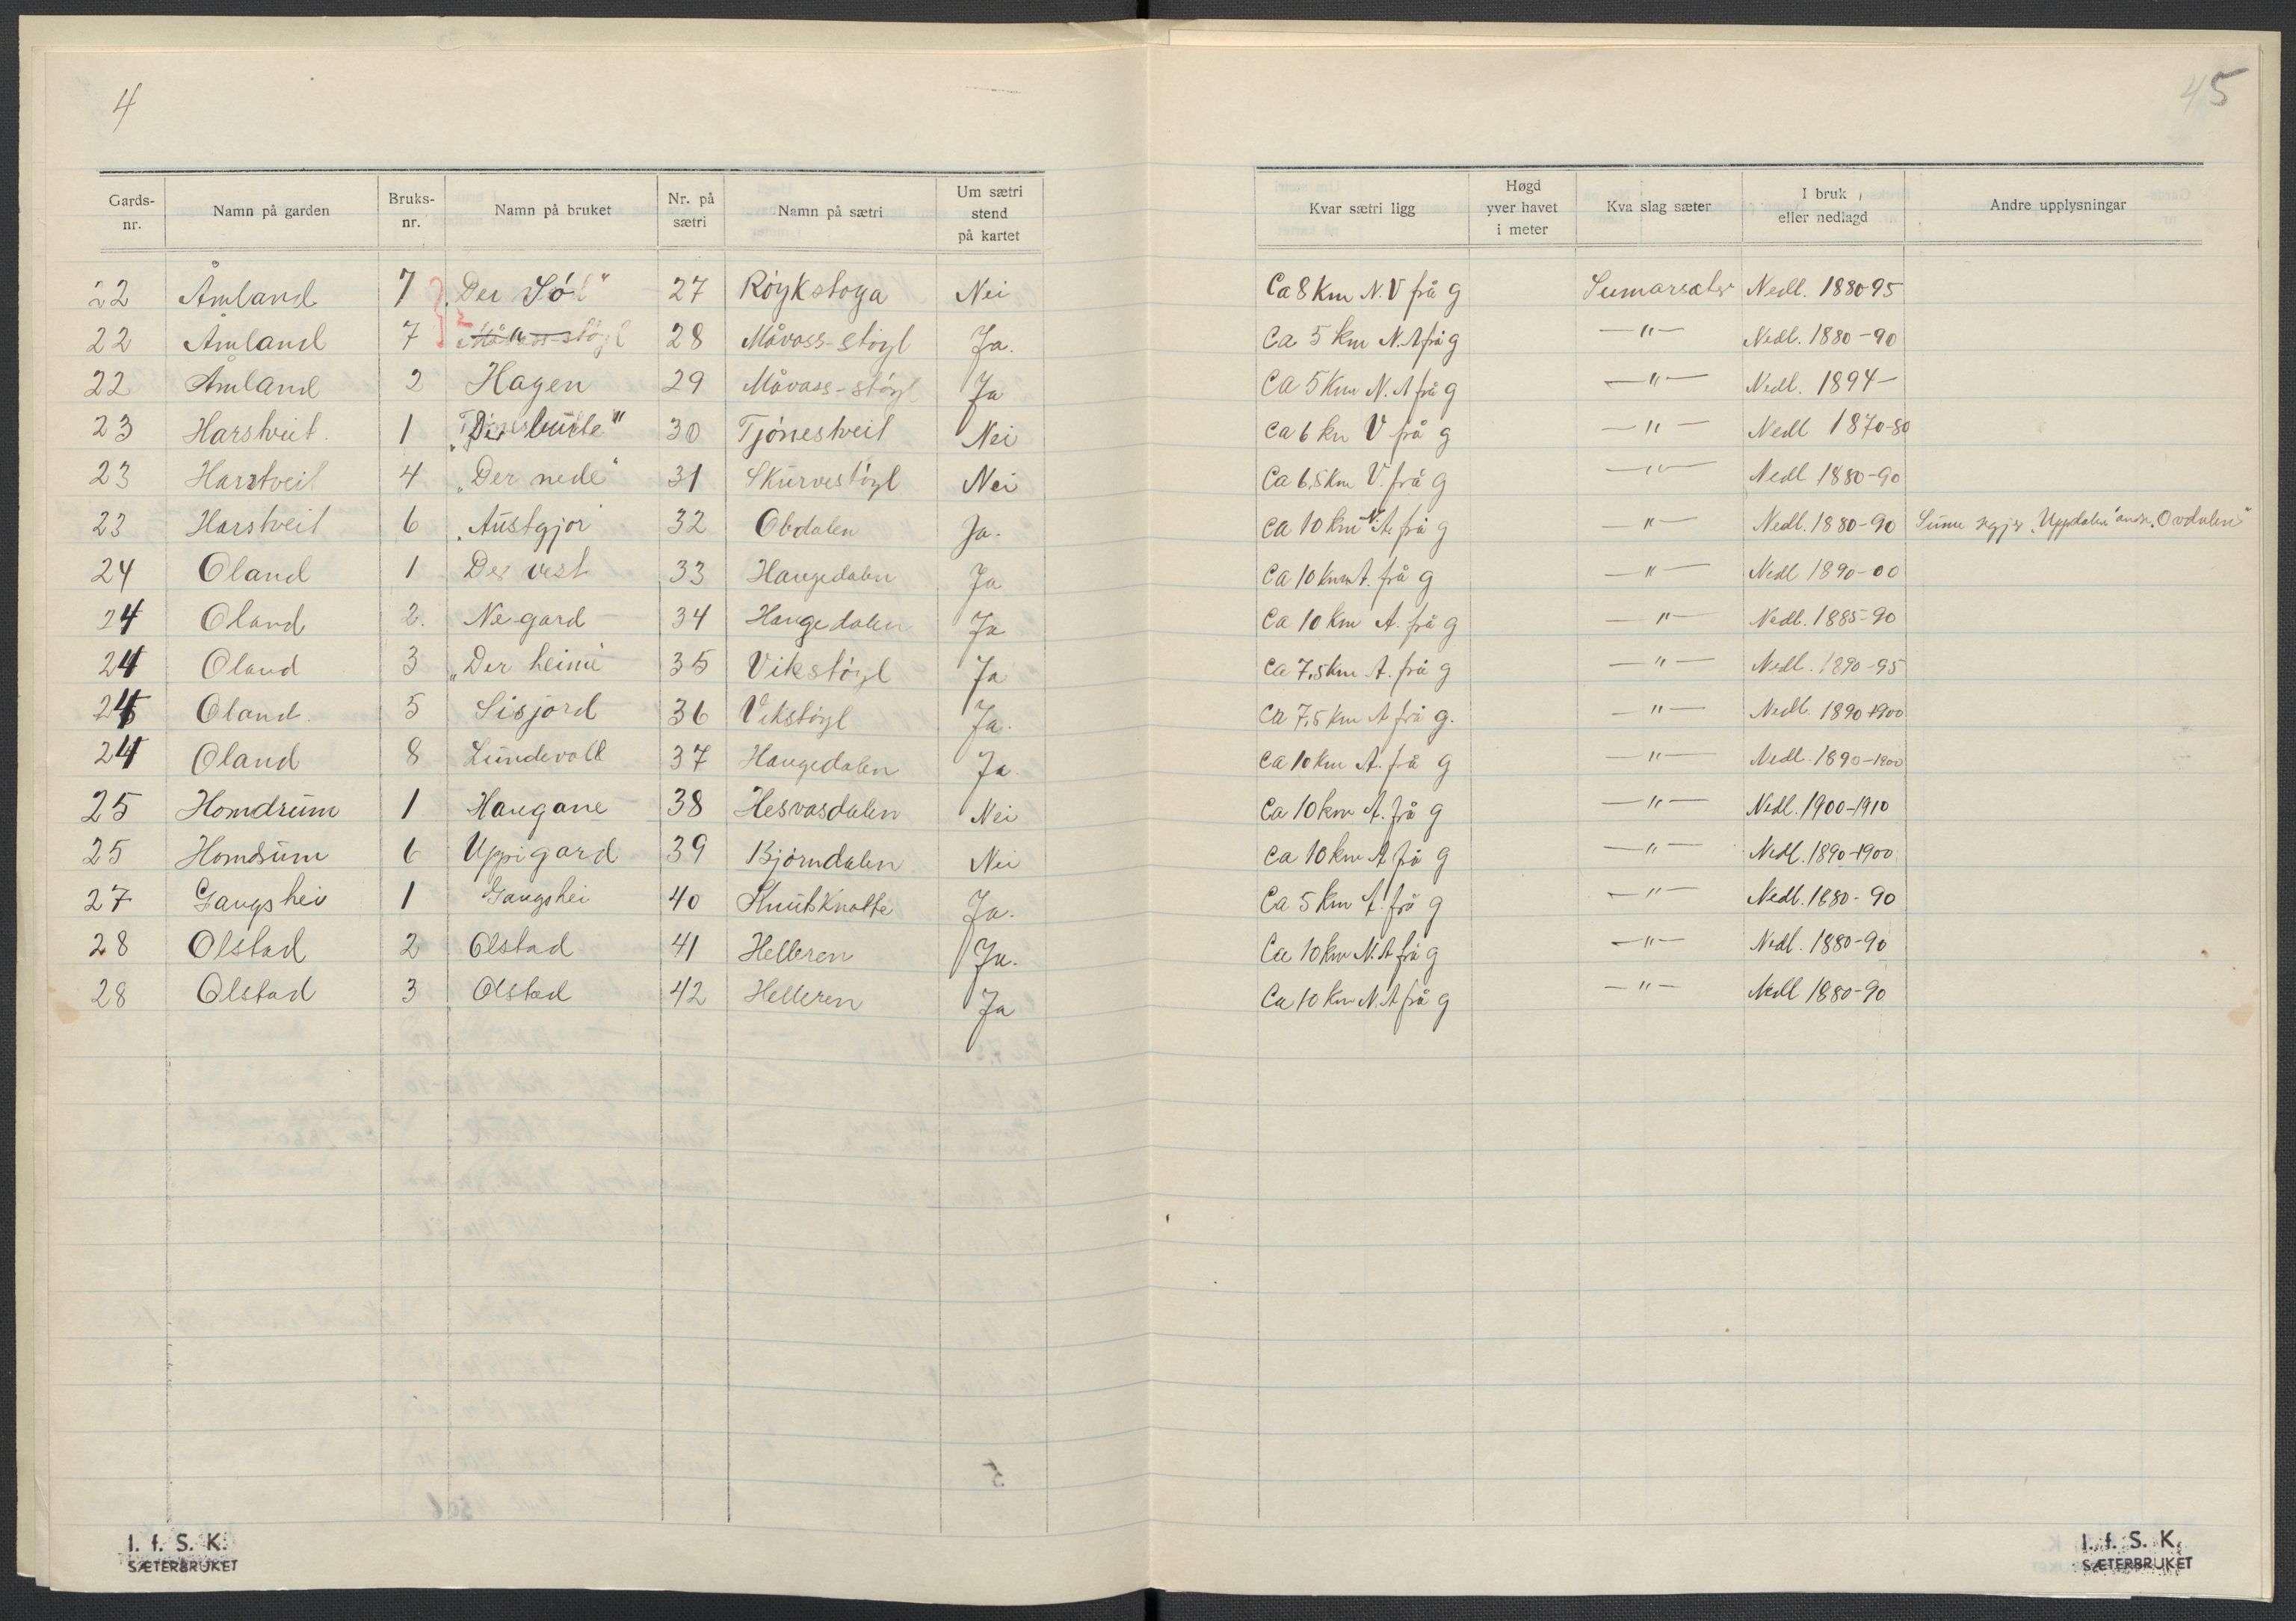 4
45
Gards-nr. Namn på garden Bruks-nr. Namn på bruket Nr. på sætri Namn på sætri Um sætri stend på kartet Kvar sætri ligg Høgd yver havet i meter Kva slag sæter I bruk eller nedlagd Andre upplysningar
22 Åmland 7 "Der Sø" 27 Røykstoga Nei Ca 8 km N.V frå g Sumarsæter Nedl. 1880-95
22 Åmland 7 " 28 Måvass-støyl Ja. Ca 5 km N.A frå g —"— Nedl. 1880-90
22 Åmland 2 Hagen 29 Måvass-støyl Ja Ca 5 km N.A frå g —"— Nedl. 1894-
23 Harstveit. 1 30 Tjønestveit Nei Ca 6 km V frå g —"— Nedl 1870-80
23 Harstveit 4 "Der nede" 31 Skurvestøyl Nei Ca 6,5 km V. frå g —"— Nedl 1880-90
23 Harstveit 6 "Austgjor" 32 Obdalen Ja. Ca 10 km frå g —"— Nedl. 1880-90 Sume segjer "Uppdalen" andre "Ovdalen"
24 Oland 1 Der vest 33 Haugedalen Ja Ca 10 km A. frå g —"— Nedl 1890-00
24 Oland 2. Negard 34 Haugedalen Ja Ca 10 km A. frå g —"— Nedl. 1885-90
24 Oland 3 "Der heime" 35 Vikstøyl Ja Ca 7,5 km A. frå g —"— Nedl. 1890-95
24 Oland. 5 Sisjord 36 Vikstøyl Ja. Ca 7,5 km A frå g. —"— Nedl. 1890-1900
24 Oland 8 Lundevoll 37 Haugedalen Ja. Ca 10 km A. frå g —"— Nedl. 1890-1900
25 Homdrum 1 Haugane 38 Hesvasdalen Nei Ca 10 km A. frå g —"— Nedl. 1900-1910
25 Homdrum 6 Uppigard 39 Bjørndalen Nei Ca 10 km A frå g —"— Nedl. 1890-1900
27 Gaugshei 1 Gaugshei 40 Knutsknatte Ja. Ca 5 km A. frå g —"— Nedl. 1880-90
28 Olstad 2 Olstad 41 Helleren Ja. Ca 10 km N.A frå g —"— Nedl. 1880-90
28 Olstad 3 Olstad 42 Helleren Ja Ca 10 km N.A frå g —"— Nedl 1880-90
I. f. S. K.
SÆTERBRUKET
I. f. S. K.
SÆTERBRUKET